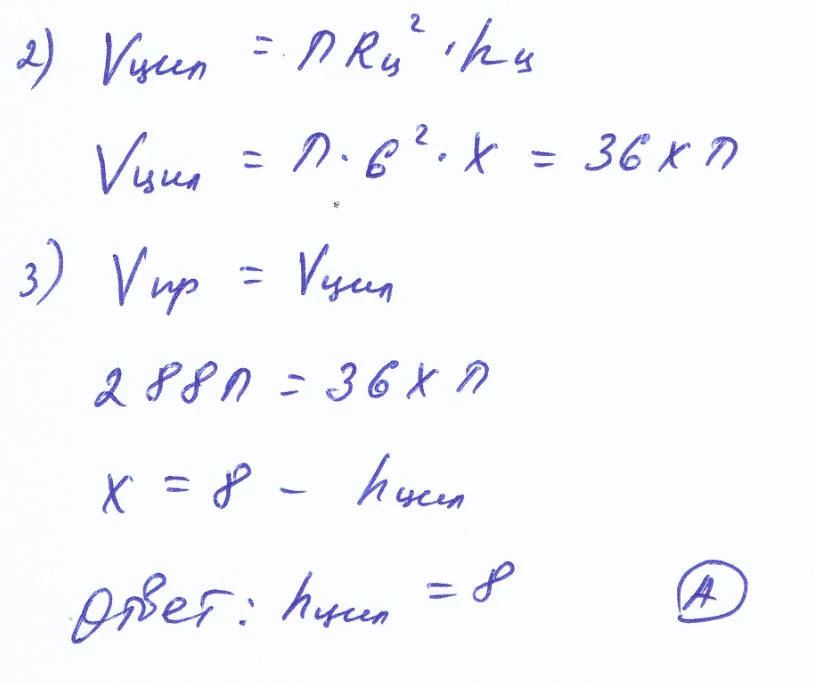 2) Vцил = п Rц² · hц
Vцил = п · 6² · x = 36 x п
3) Vпр = Vцил
288п = 36 x п
x = 8 – hцил
Ответ: hцил = 8 А